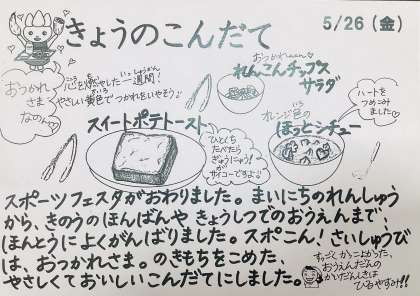 きょうのこんだて
5/26（金）
おつかれ
さま
なのん♡
心を燃やした一週間!
やさしい黄色でつかれをいやそう♪
おつかれ〜ん♡
れんこんチップス
サラダ
スイートポテトースト
ひとくち
たべたら
ぎゅうにゅう!
がサイコーですよ
オレンジ色の
ほっとシチュー
ハートを
つめこみ
ました♡
スポーツフェスタがおわりました。まいにちのれんしゅう
から、きのうのほんばんや きょうしつでのおうえんまで、
ほんとうによくがんばりました。スポこん! さいしゅうび
は、おつかれさま。のきもちをこめた、
やさしくておいしいこんだてにしました。
すっごくかっこよかった、
おうえんだんの
かいだんしきは
ひるやすみ!!